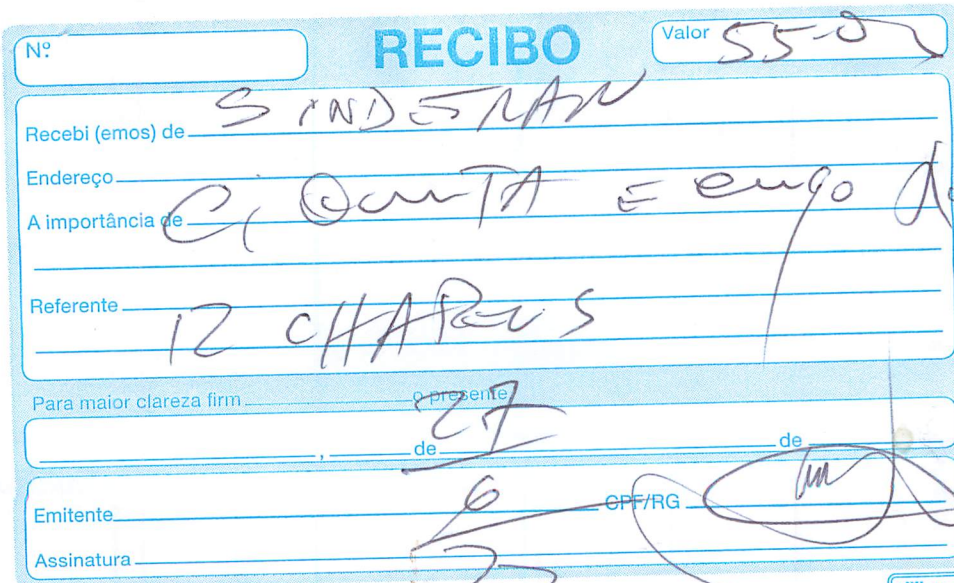 Nº RECIBO Valor 55-00
Recebi (emos) de SINDETRAN
Endereço
A importância de Ciquenta E
Referente 12 CHAPEUS
Para maior clareza firm o presente
, de 27 de
Emitente 6 CPF/RG
Assinatura